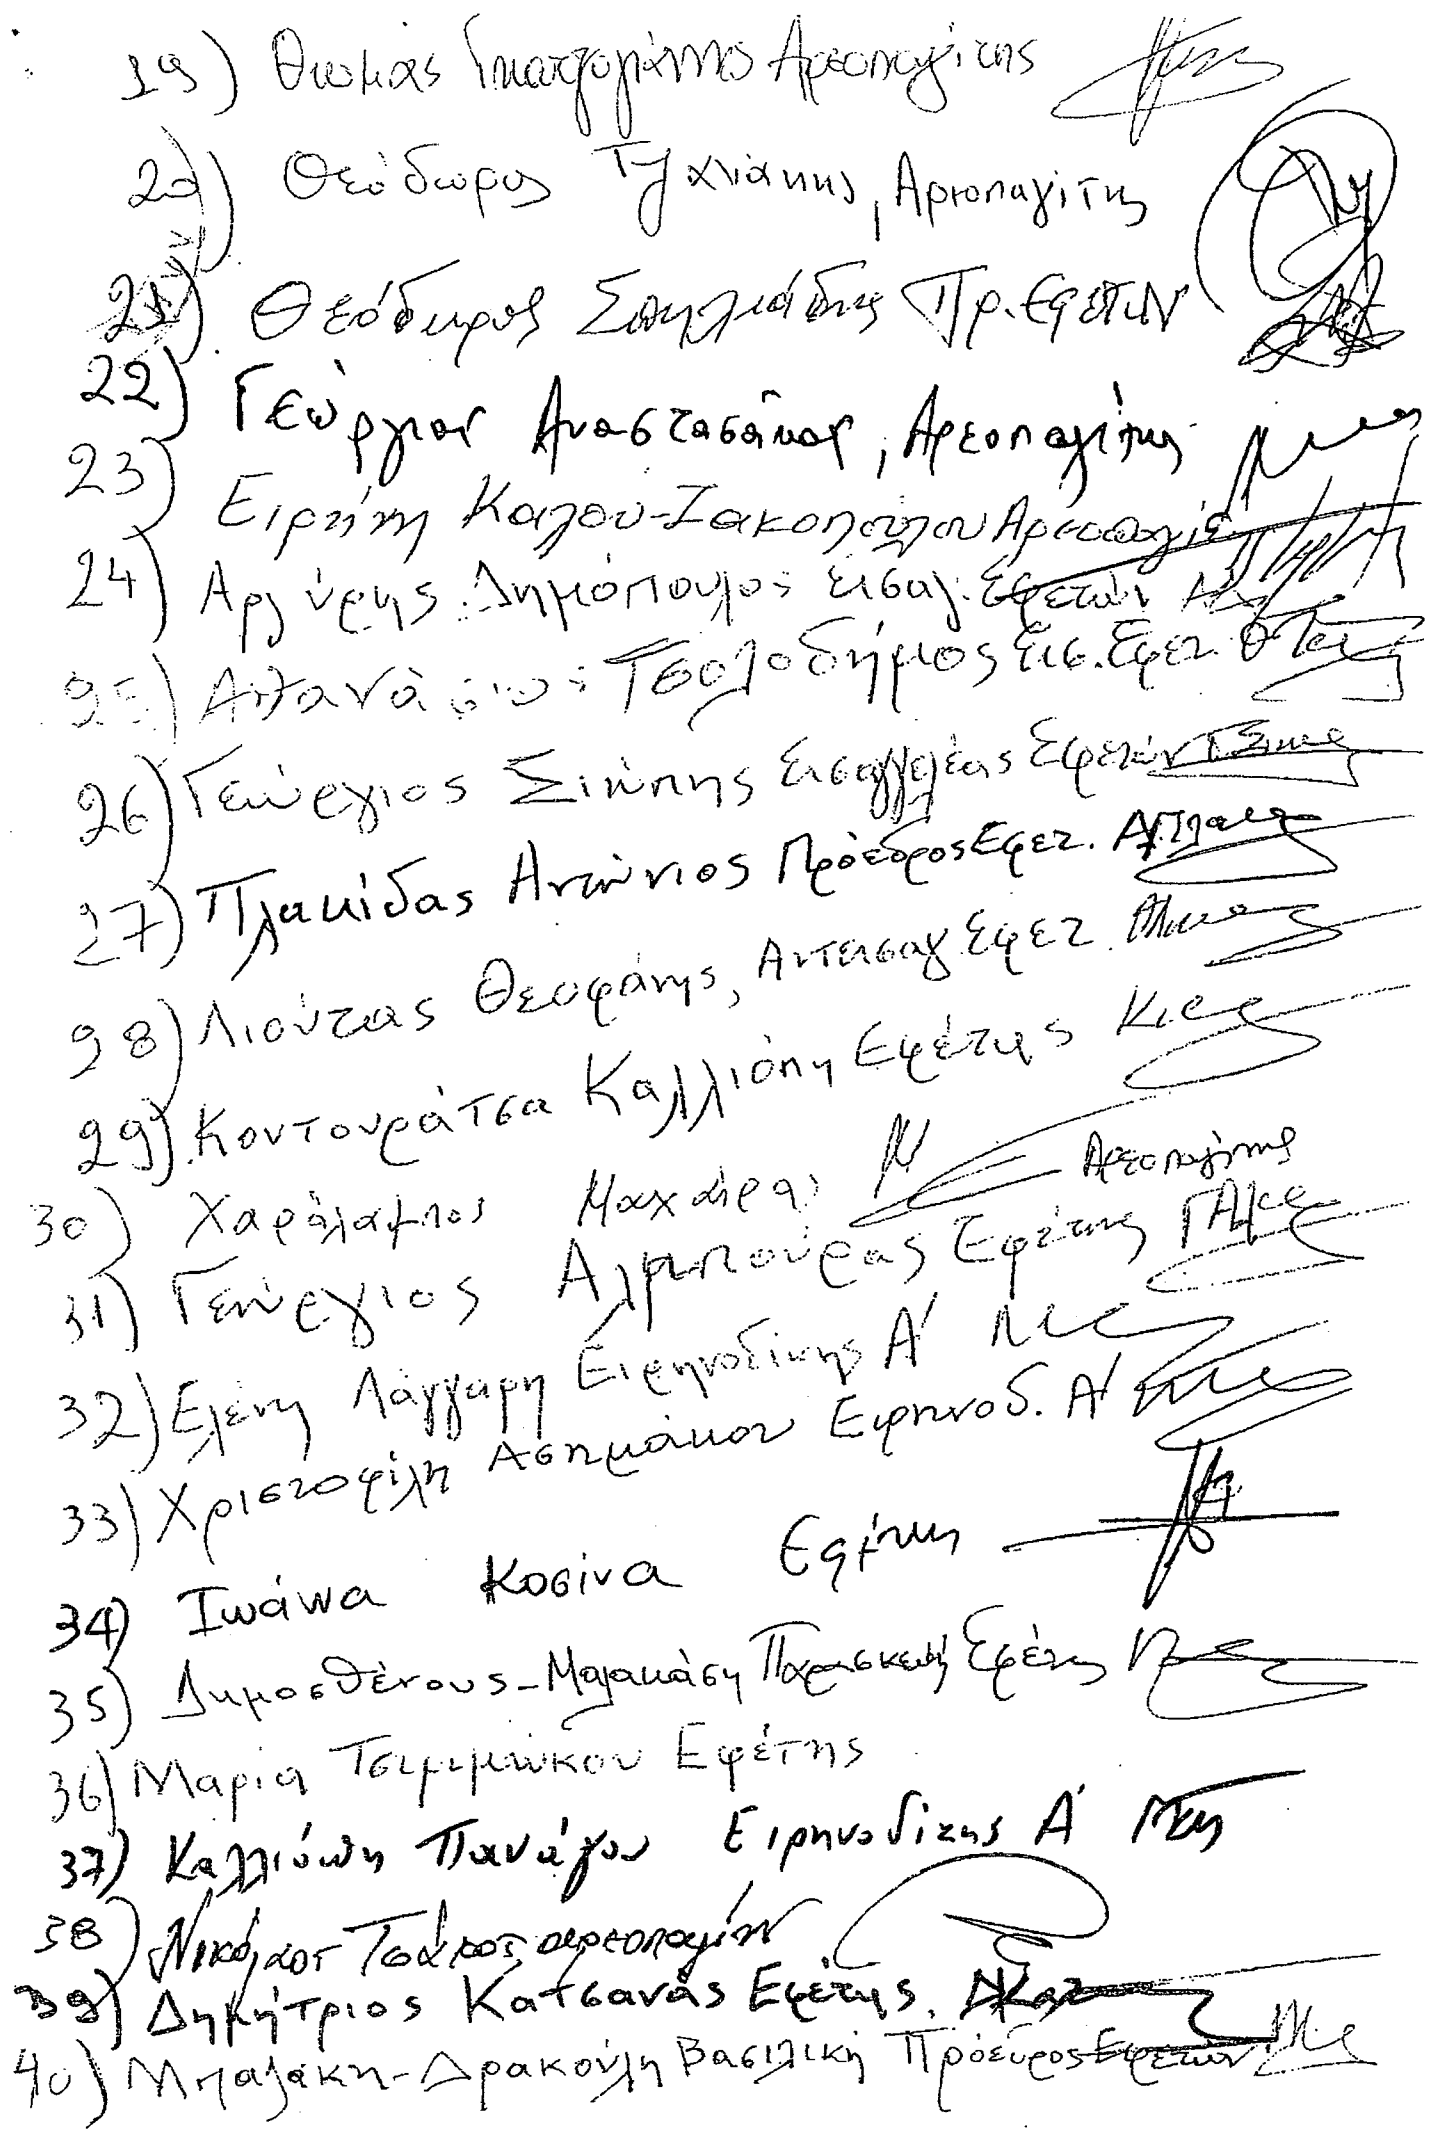 19) Θωμάς Γκατζογιάννης Αρεοπαγίτης
20) Θεόδωρος Τζανάκης, Αρεοπαγίτης
21) Θεόδωρος Σπηλιάδης Πρ. Εφετών
22) Γεώργιος Αναστασάκος, Αρεοπαγίτης
23) Ειρήνη Καλού - Αρεοπαγίτ
24) Αργύρης Δημόπουλος Εισαγ. Εφετών
25) Αθανάσιος Τσολοδήμος Εισ. Εφετ.
26) Γεώργιος Σιώπης Εισαγγελέας Εφετών
27) Πλακίδας Αντώνιος Πρόεδρος Εφετ.
28) Λιούτας Θεοφάνης, Αντεισαγ. Εφετ.
29) Κοντουράτσα Καλλιόπη Εφέτης
30) Χαράλαμπος Μαχαίρας Αρεοπαγίτης
31) Γεώργιος Αλμπούρας Εφέτης
32) Ελένη Λάγγαρη Ειρηνοδίκης Α'
33) Χριστοφίλη Ασημάκου Ειρηνοδ. Α'
34) Ιωάννα Κοσίνα Εφέτης
35) Δημοσθένους - Μαλακάση Παρασκευή Εφέτης
36) Μαρία Εφέτης
37) Καλλιόπη Πανάγου Ειρηνοδίκης Α'
38) Νικόλαος Τσάκος αρεοπαγίτης
39) Δημήτριος Κατσανάς Εφέτης.
40) Μπαλάκη - Δρακούλη Βασιλική Πρόεδρος Εφετών